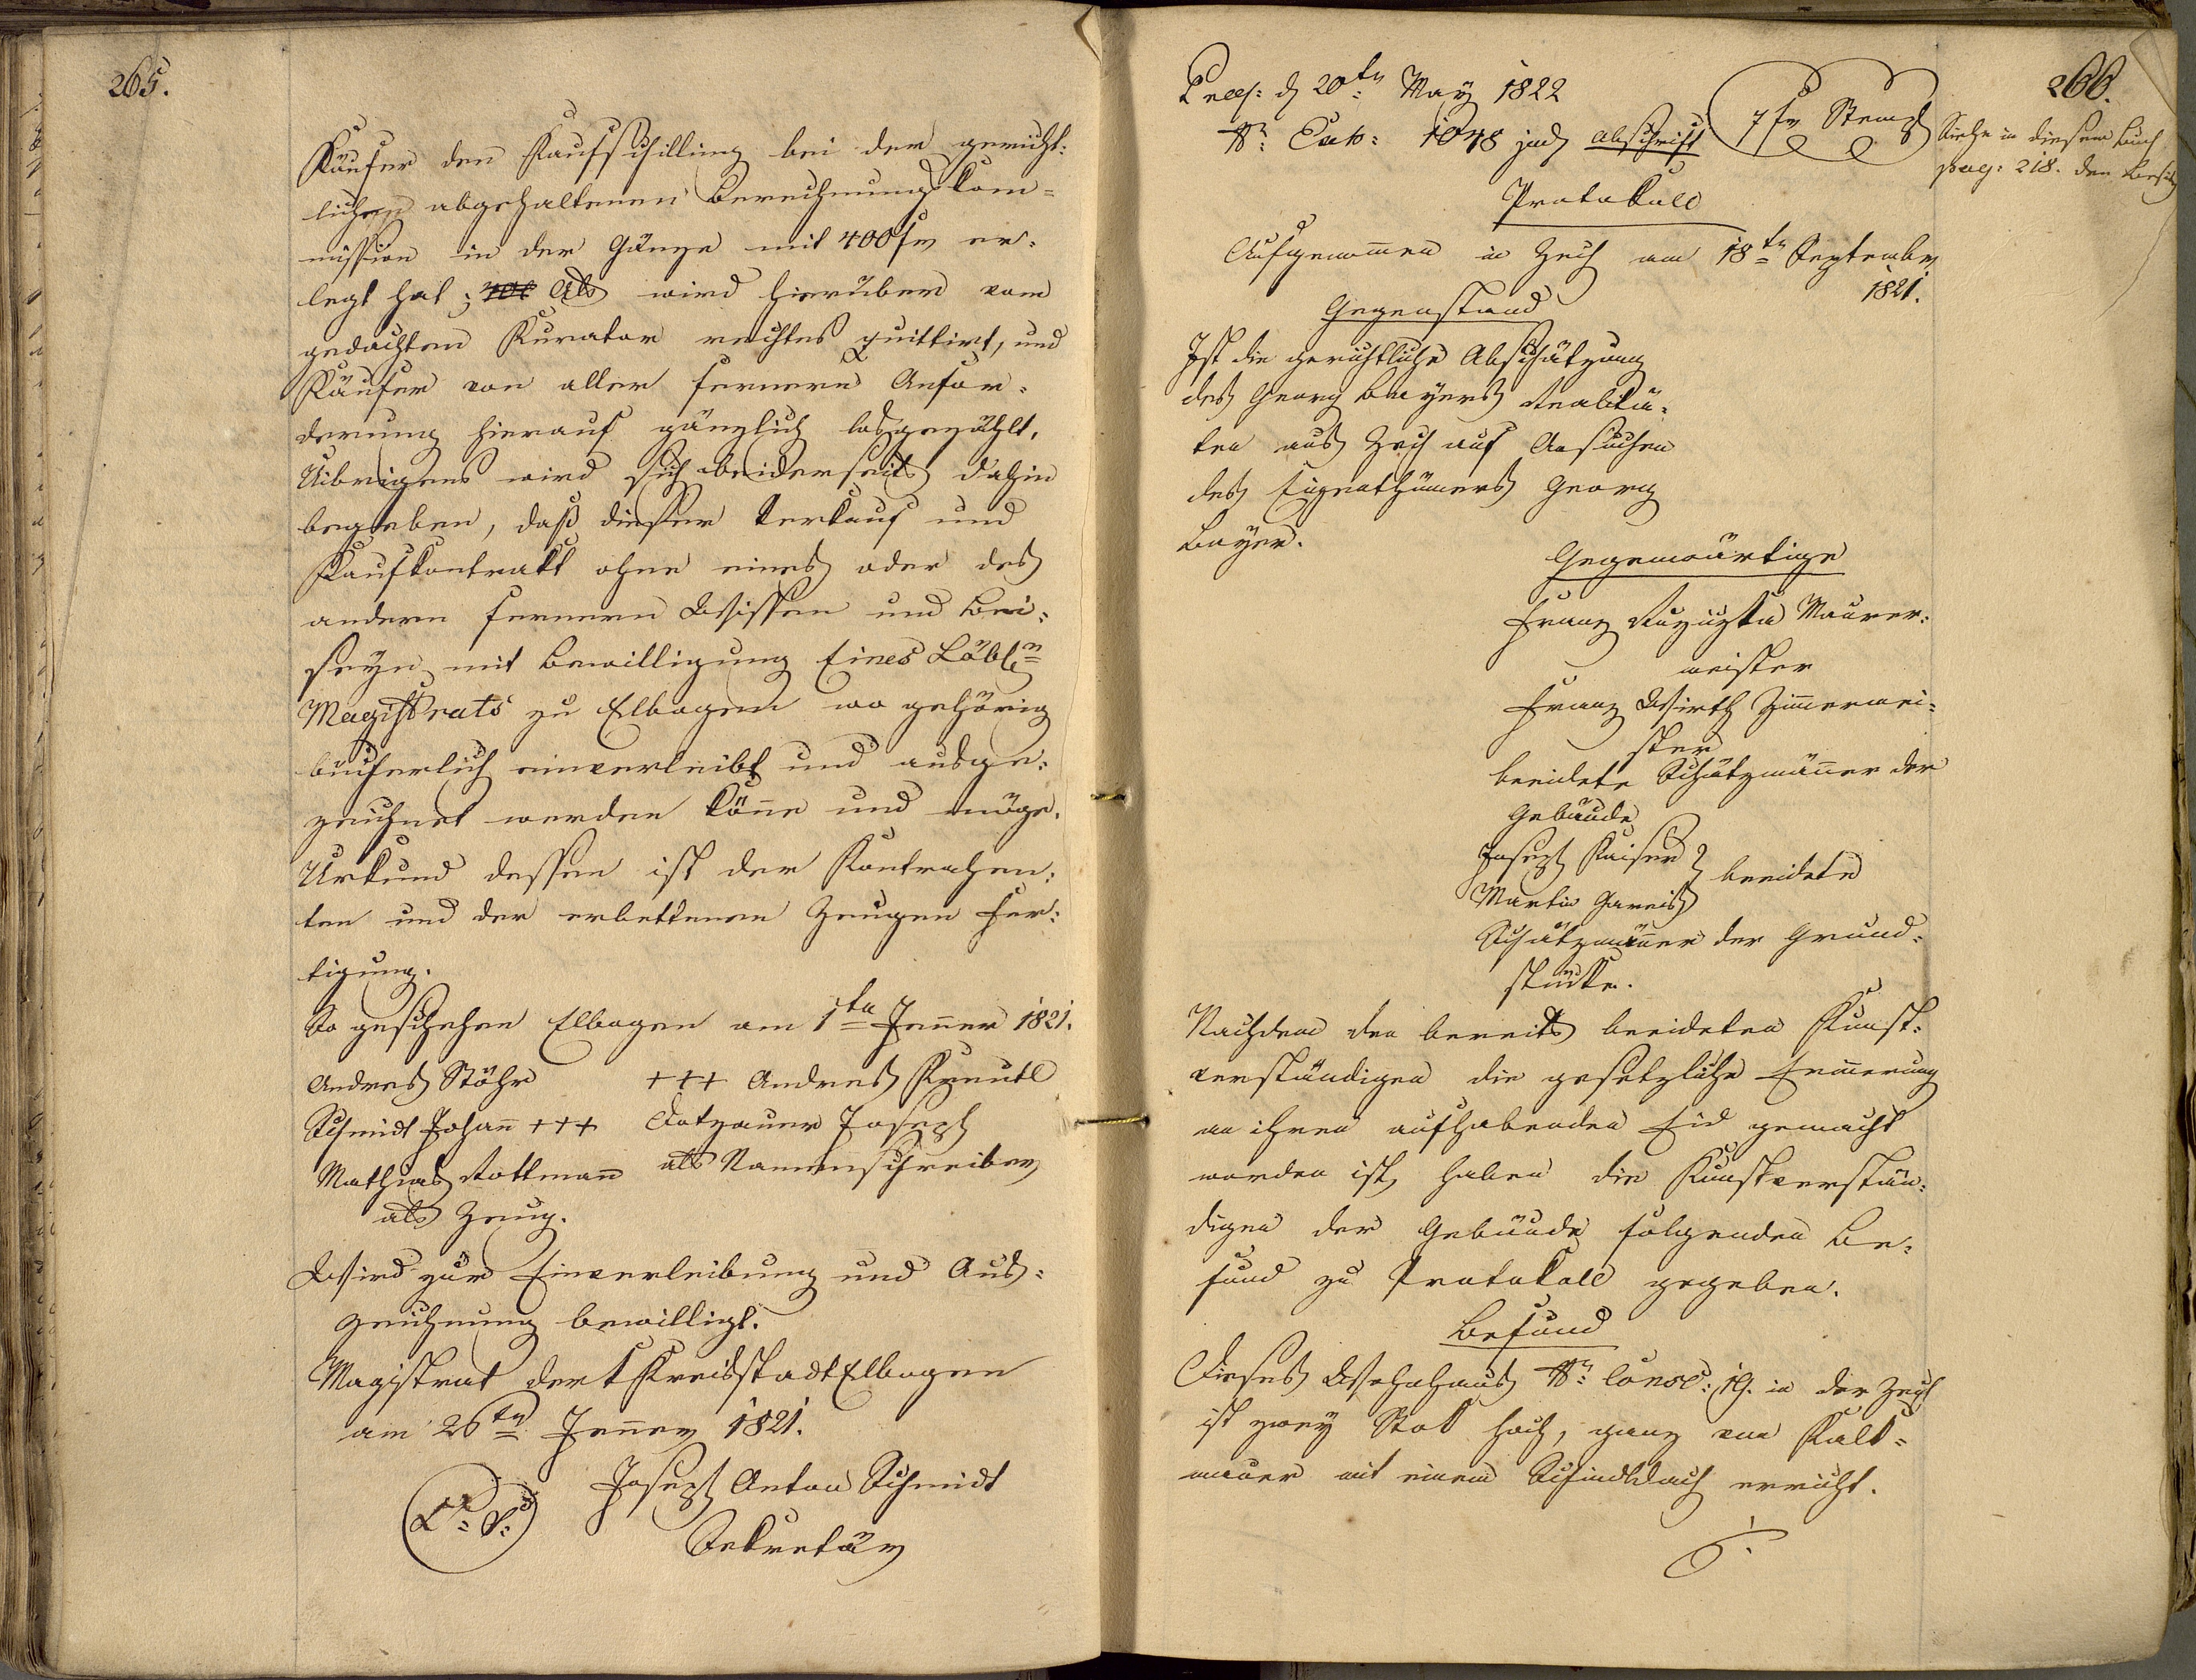 265.
Käufer den Kaufschilling bei der gericht:
lichen abgehaltenen Berechnungskom=
mission in der Gänze mit 400 fr er:
legt hat; Als wird hierüber vom
gedachten Kurator rechtes quittirt, und
Käufer von aller fernern Anfor=
derung hierauf gänzlich losgezählt.
Uibrigens wird sich beiderseits dahin
begeben, daß dieser Verkauf und
Kaufkontrakt ohne eines oder des
andern fernern Wissen und Bei:
seyn mit Bewilligung Eines Löbl:n
Magistrats zu Elbogen wo gehörig
bücherlich einverleibt und ausge:
zeichnet werden könne und möge.
Urkund dessen ist der Kontrahen:
ten und der erbettenen Zeugen Fer:
tigung.
So geschehen Elbogen am 1ten Jenner 1821.
Andreas Stöhr +++ Andreas
Schmidt Johann +++ Dotzauer Joseph
Mathias Rottmann als Namenschreiber
als Zeug.
Wird zur Einverleibung und Aus:
zeichnung bewilligt.
Magistrat der Kreisstadt Elbogen
am 26ten Jenner 1821.
L: S: Joseph Anton Schmidt
Sekretär
266.
Praes: d 20ten May 1822
Nr: Exh: 1078 jud Abschrift 7 fr Stempl
Siehe in diesem Buch
pag: 218. den Besitz
Protokoll
Aufgenommen in Zech am 18ten September
1821.
Gegenstand
Ist die gerichtliche Abschätzung
des Georg Bayers Realitä:
ten aus Zech auf Ansuchen
des Eigenthümers Georg
Bayer.
Gegenwärtige
Franz Maurer:
meister
Franz Wirth Zimmermei:
ster
beeidete Schätzmänner der
Gebäude
Joseph Kaiser } beeidete
Martin Gareis
Schätzmänner der Grund:
stücke.
Nachdem den bereits beeideten Kunst:
verständigen die gesetzliche Erinnerung
an ihren aufhabenden Eid gemacht
worden ist, haben die Kunstverstän:
digen der Gebäude folgenden Be:
fund zu Protokoll gegeben.
Befund
Dieses Wohnhaus Nr: Consc: 19. in der Zech
ist zwey Stok hoch, ganz von Kalk=
mauer mit einem Schindldach erricht.